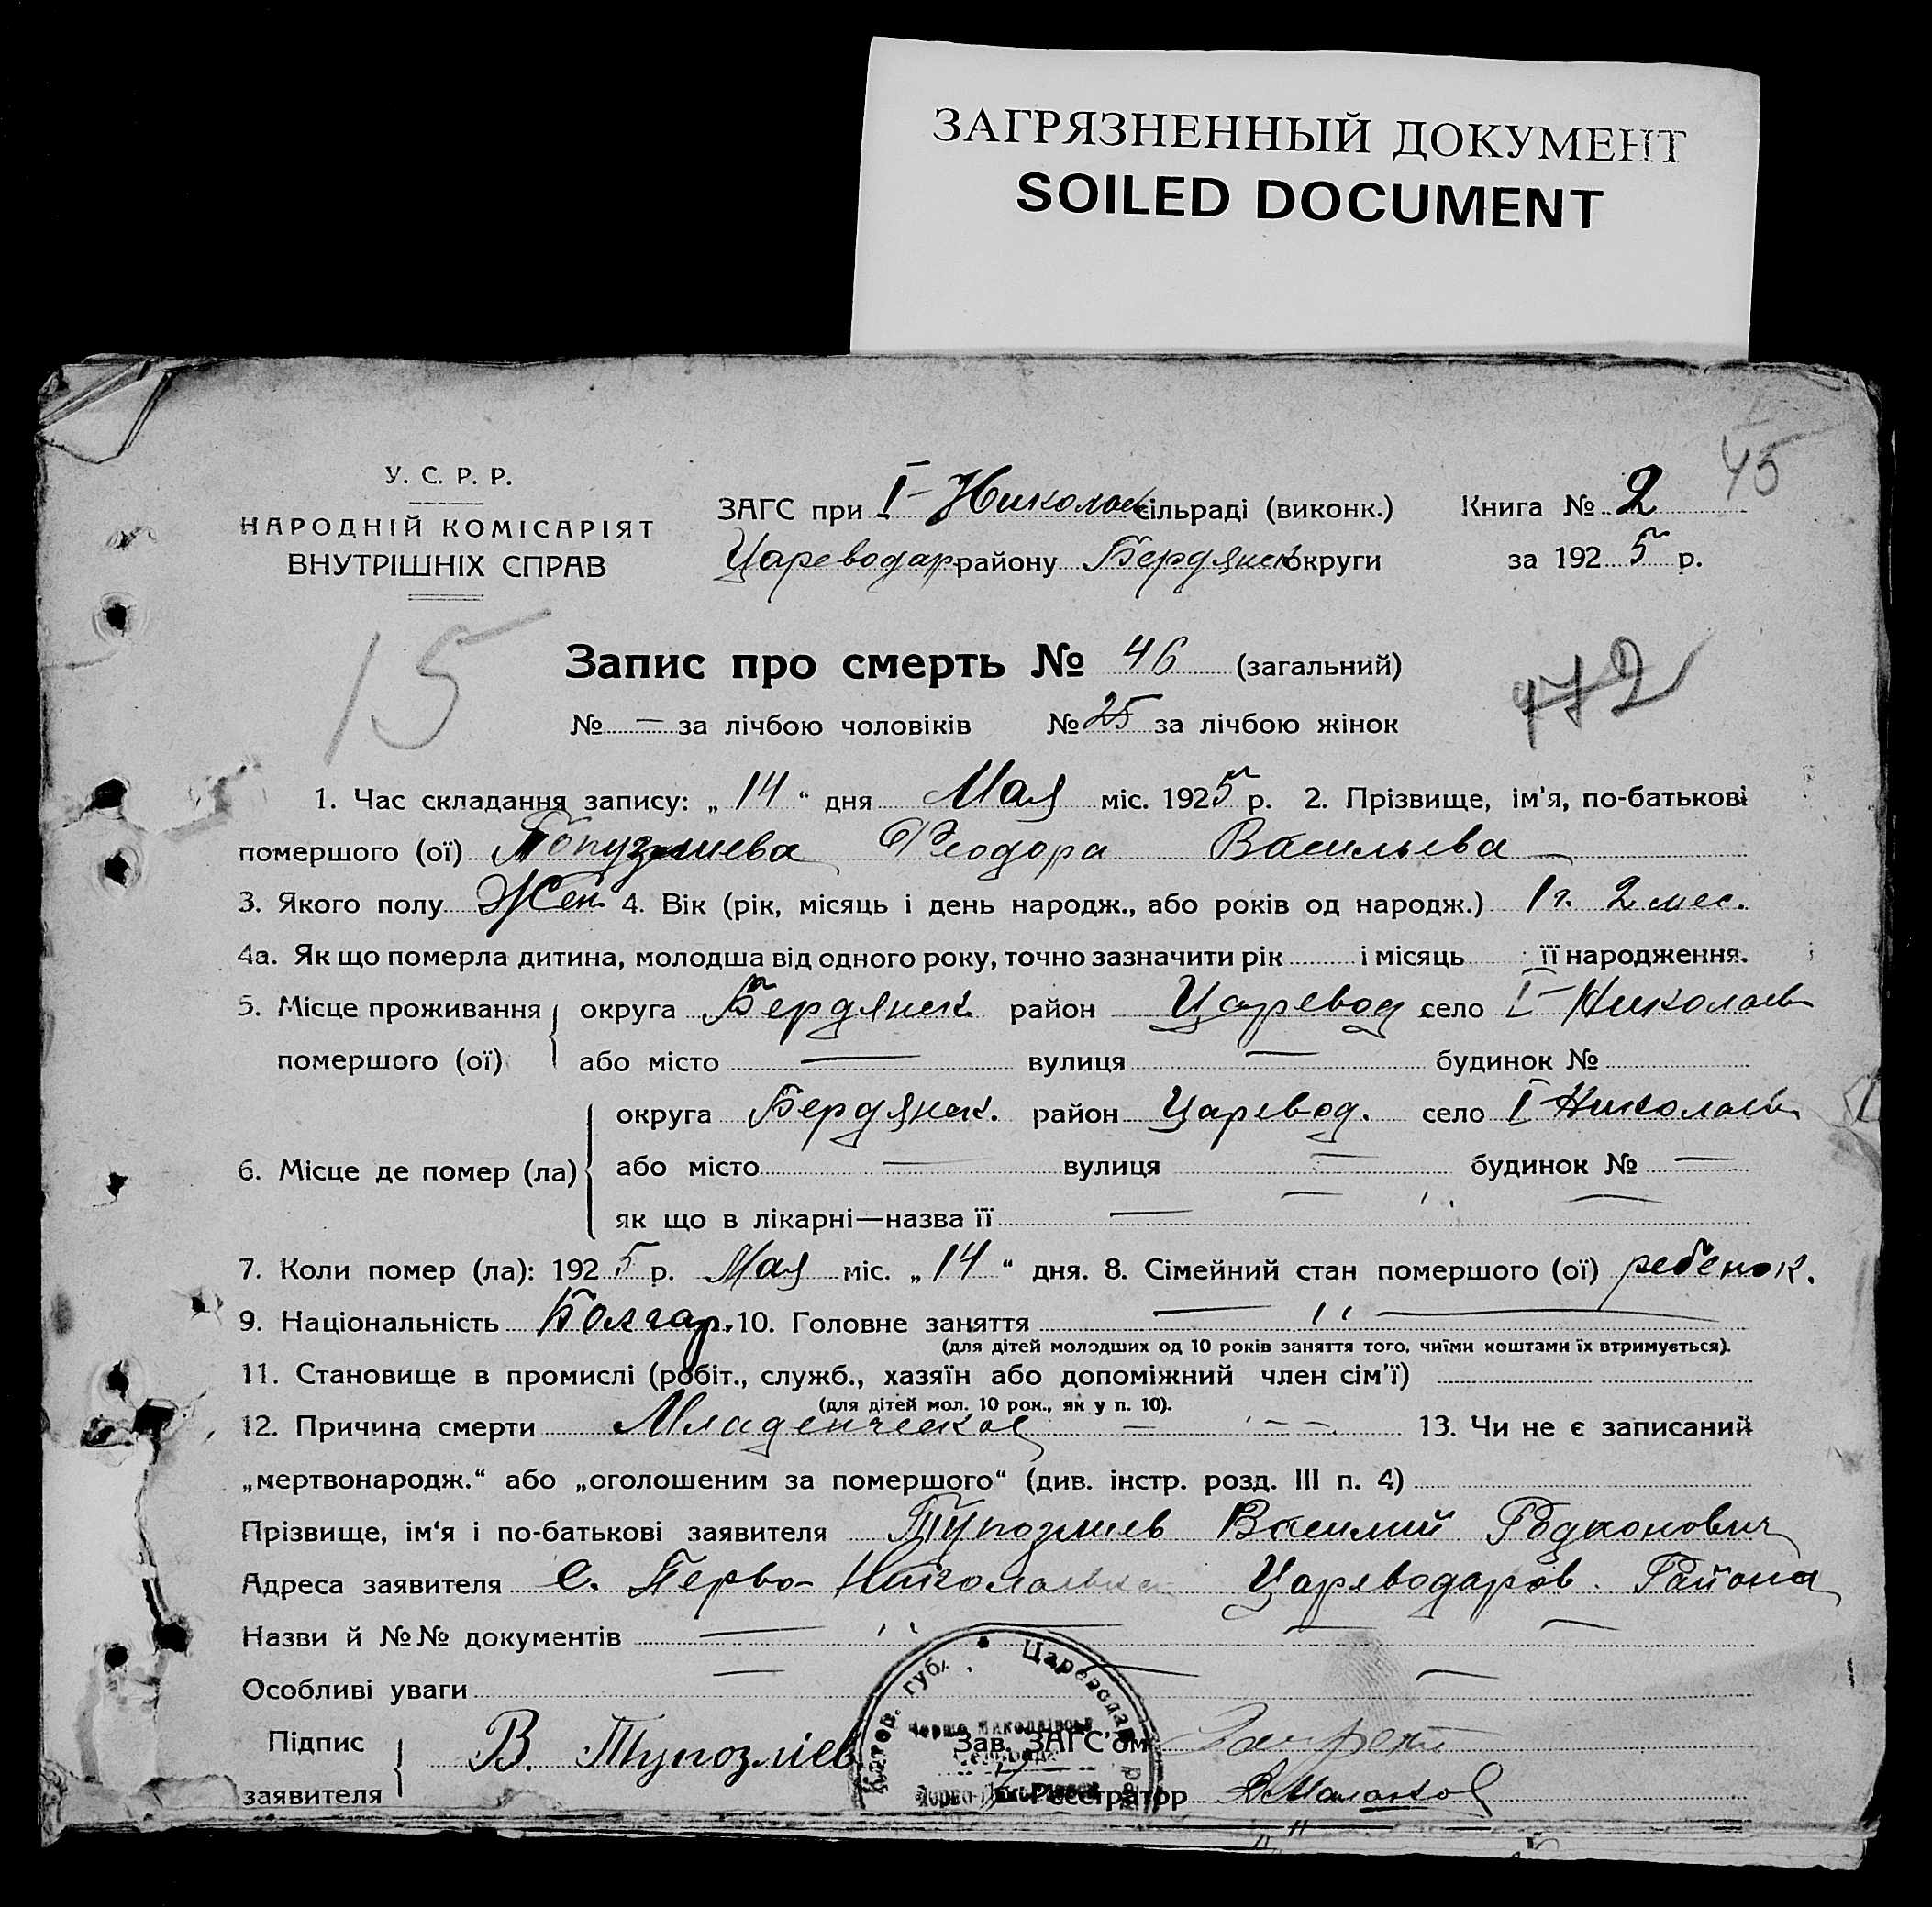 ЗАГРЯЗНЕННЫЙ ДОКУМЕНТ
SOILED DOCUMENT
45
У. С. Р. Р.
НАРОДНІЙ КОМІСАРІЯТ
ВНУТРІШНІХ СПРАВ
ЗАГС при I-Николаев сільраді (виконк.) Книга № 2
Цареводар. району Бердянск округи за 1925 р.
15
Запис про смерть № 46 (загальний)
472
№ — за лічбою чоловіків № 25 за лічбою жінок
1. Час складання запису: „14“ дня Мая міс. 1925 р. 2. Прізвище, ім'я, по-батькові
помершого (ої) Феодора Васильева —
3. Якого полу Жен. 4. Вік (рік, місяць і день народж., або років од народж.) 1 г. 2 мес.
4а. Як що померла дитина, молодша від одного року, точно зазначити рік і місяць її народження.
5. Місце проживання округа Бердянск район Царевод село I-Николаев
помершого (ої) або місто — вулиця — будинок №
округа Бердянск. район Царевод. село I Николаев
6. Місце де помер (ла) або місто — вулиця — будинок № —
як що в лікарні—назва її —
7. Коли помер (ла): 1925 р. Мая міс. „14“ дня. 8. Сімейний стан помершого (ої) ребенок.
9. Національність Болгар. 10. Головне заняття — ״ —
(для дітей молодших од 10 років заняття того, чиїми коштами їх втримується).
11. Становище в промислі (робіт., служб., хазяїн або допоміжний член сім'ї)
(для дітей мол. 10 рок., як у п. 10).
12. Причина смерти Младенческая — 13. Чи не є записаний
„мертвонародж.“ або „оголошеним за помершого“ (див. інстр. розд. III п. 4)
Прізвище, ім'я і по-батькові заявителя Тупозлиев Василий Родионович
Адреса заявителя С. Перво-Николаевка Цареводаров. Района
Назви й №№ документів —
Особливі уваги —
Підпис
заявителя В. Тупозлиев
Катер. губ. Цареводар. рай
Зав. ЗАГС'ом
Реєстратор